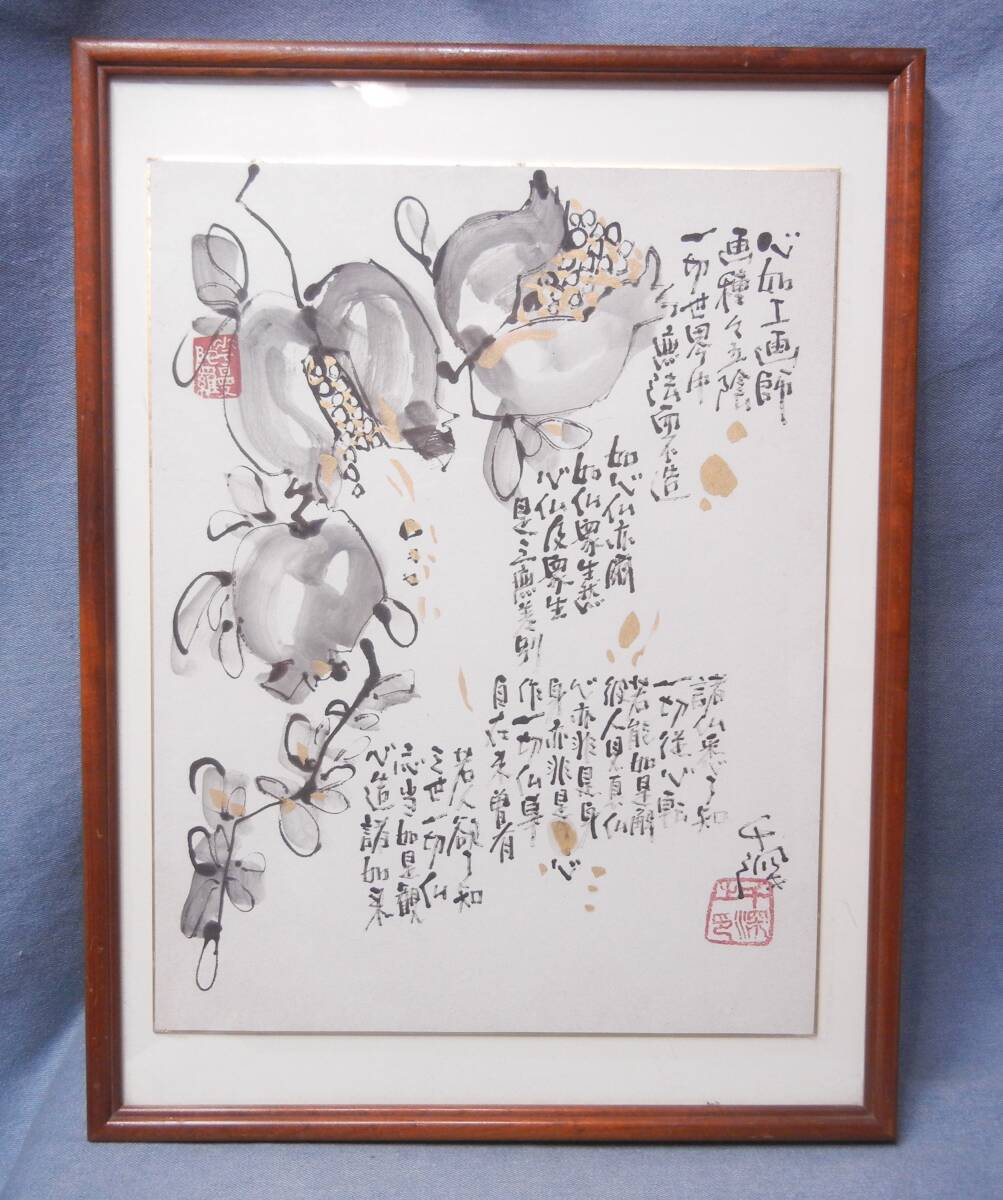 心如工画師
画種々五陰
一切世界中
無法而不造
如心仏亦爾
如仏衆生然
心仏及衆生
是三無差別
諸仏悉了知
一切従心転
若能如是解
彼人見真仏
心亦非是身
身亦非是心
作一切仏事
自在未曽有
若人欲了知
三世一切仏
応当如是観
心造諸如来
千深
千深之印
曼陀羅